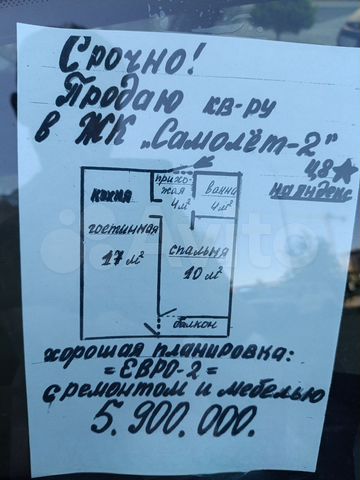 Срочно!
Продаю кв-ру
в ЖК „Самолёт-2"
4,8★
на яндекс
кухня
гостинная
17 м²
прихо-
жая
4 м²
ванна
4 м²
спальня
10 м²
балкон
хорошая планировка:
= ЕВРО-2 =
с ремонтом и мебелью
5.900.000.
Avito